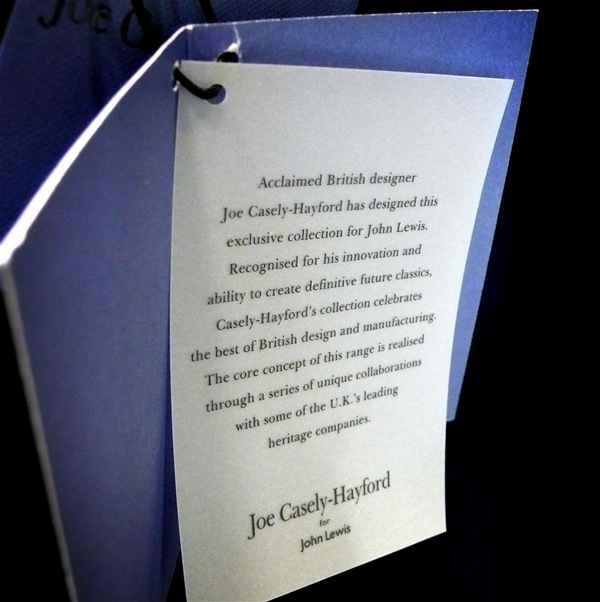 Joe &
Acclaimed British designer
Joe Casely-Hayford has designed this
exclusive collection for John Lewis.
Recognised for his innovation and
ability to create definitive future classics,
Casely-Hayford's collection celebrates
the best of British design and manufacturing.
The core concept of this range is realised
through a series of unique collaborations
with some of the U.K.'s leading
heritage companies.
Joe Casely-Hayford
for
John Lewis